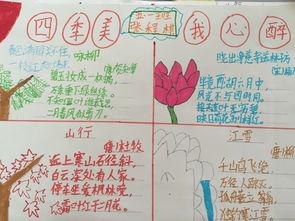 四季美
我心醉
咏柳
碧玉妆成一树高，
万条垂下绿丝绦。
不知细叶谁裁出，
二月春风似剪刀。
晓出净慈寺送林子方
毕竟西湖六月中，
风光不与四时同。
接天莲叶无穷碧，
映日荷花别样红。
山行
唐 杜牧
远上寒山石径斜，
白云深处有人家。
停车坐爱枫林晚，
霜叶红于二月花。
江雪
千山鸟飞绝，
万径人踪灭。
孤舟蓑笠翁，
独钓寒江雪。